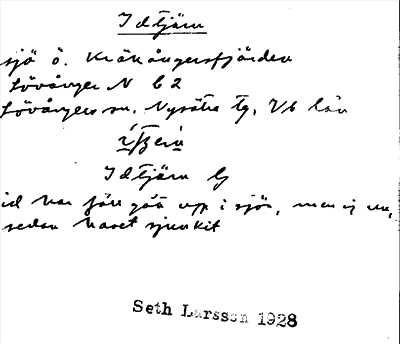 Idtjärn
sjö ö. Kräkångersfjärden
Lövånger N 62
Lövångers sn. Nysätra tg. Vb län
Idtjärn G
id har förr gått upp i sjön, men ej nu,
sedan havet sjunkit
Seth Larsson 1928